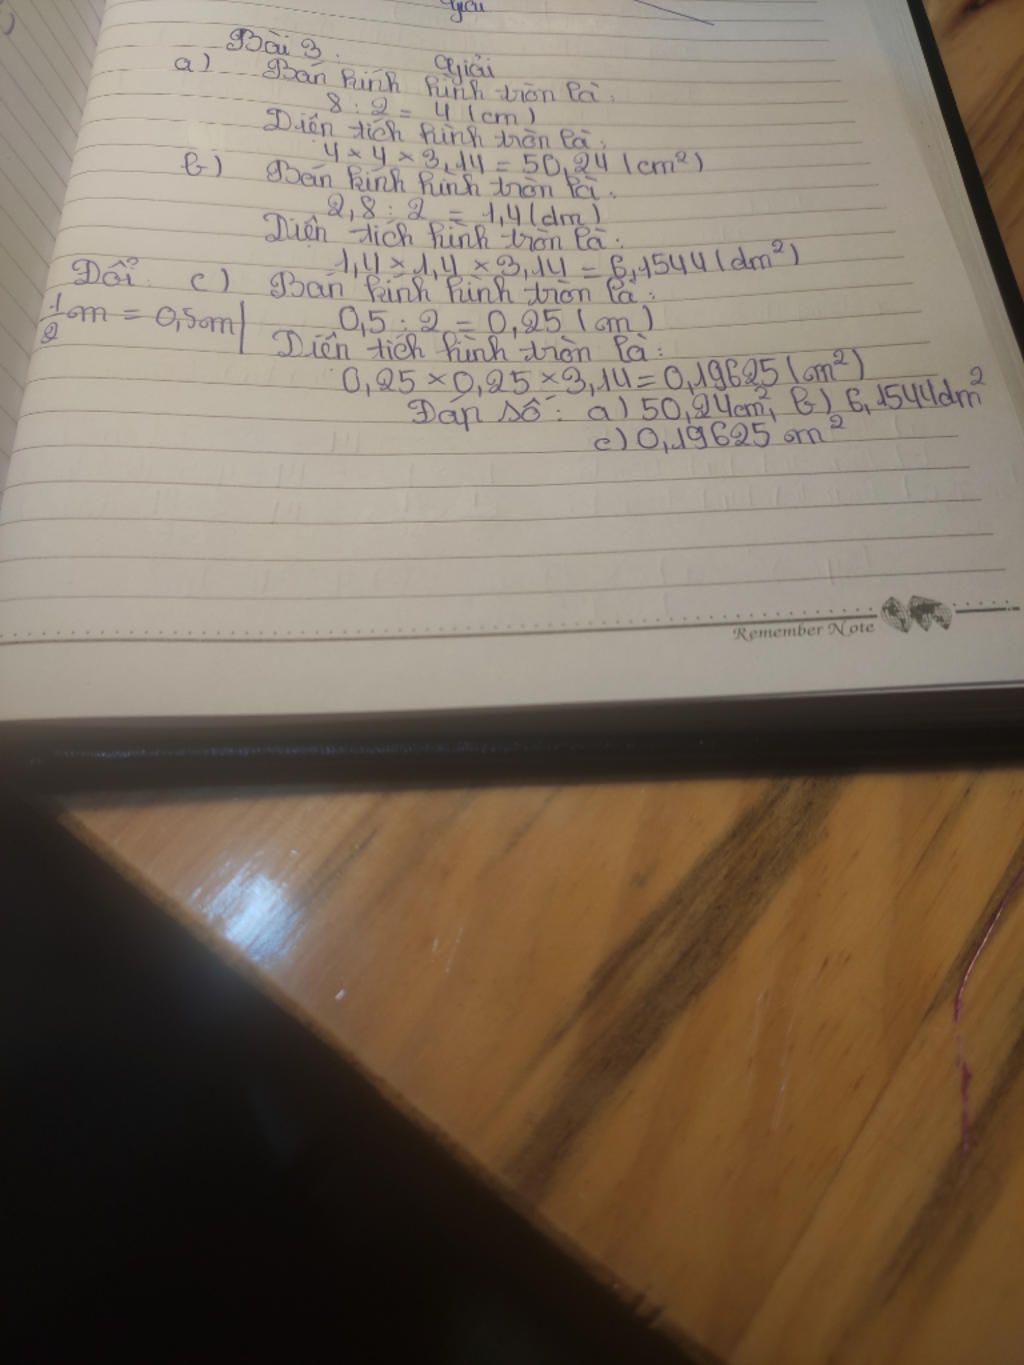 Bài 3:
Giải
a) Bán kính hình tròn là:
8 : 2 = 4 (cm)
Diện tích hình tròn là:
4 × 4 × 3,14 = 50,24 (cm²)
b) Bán kính hình tròn là:
2,8 : 2 = 1,4 (dm)
Diện tích hình tròn là:
1,4 × 1,4 × 3,14 = 6,1544 (dm²)
Đổi: c) Bán kính hình tròn là:
1/2 m = 0,5m | 0,5 : 2 = 0,25 (m)
Diện tích hình tròn là:
0,25 × 0,25 × 3,14 = 0,19625 (m²)
Đáp số: a) 50,24cm², b) 6,1544dm²
c) 0,19625 m²
Remember Note